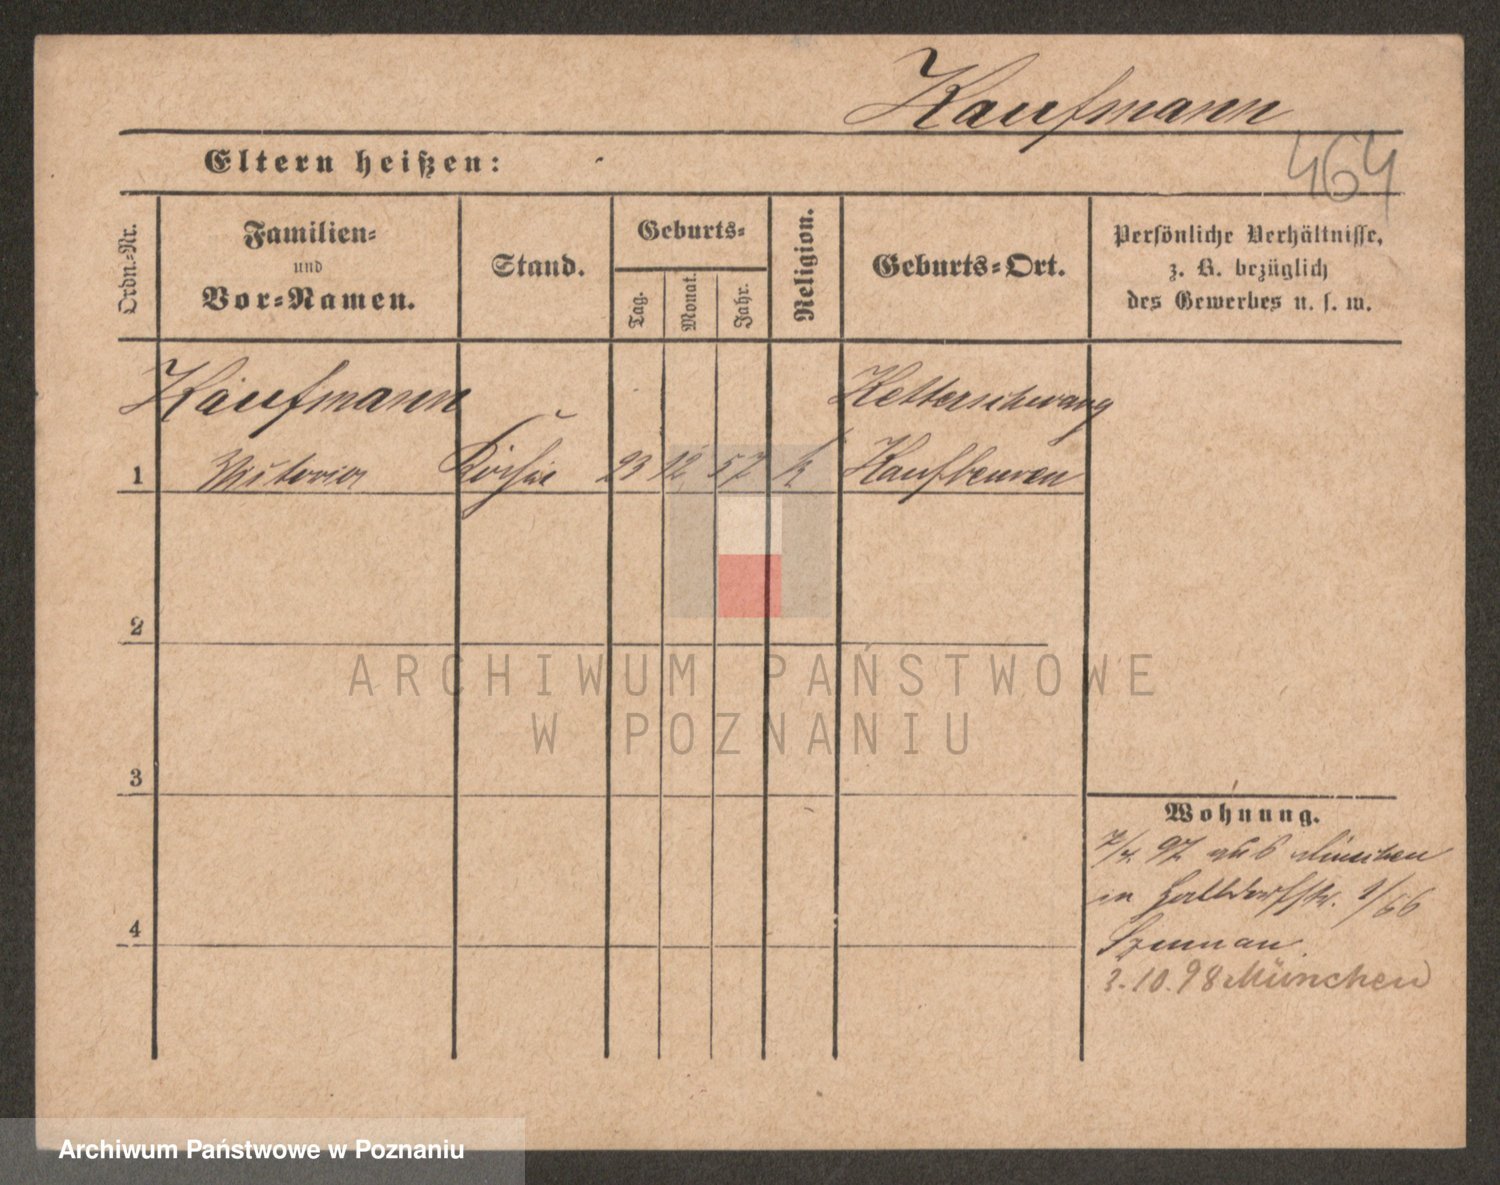 Kaufmann
464
Eltern heißen:
Ordn.-Nr.
Familien-
und
Vor-Namen.
Stand.
Geburts-
Tag.
Monat.
Jahr.
Religion.
Geburts-Ort.
Persönliche Verhältnisse,
z. B. bezüglich
des Gewerbes u. s. w.
Kaufmann
Ketterschwang
1 Victoria Köchin 23 12 57 k Kaufbeuren
2
3
4
Wohnung.
7/4. 97 aus München
in 1/66
3.10.98 München
ARCHIWUM PAŃSTWOWE
W POZNANIU
Archiwum Państwowe w Poznaniu